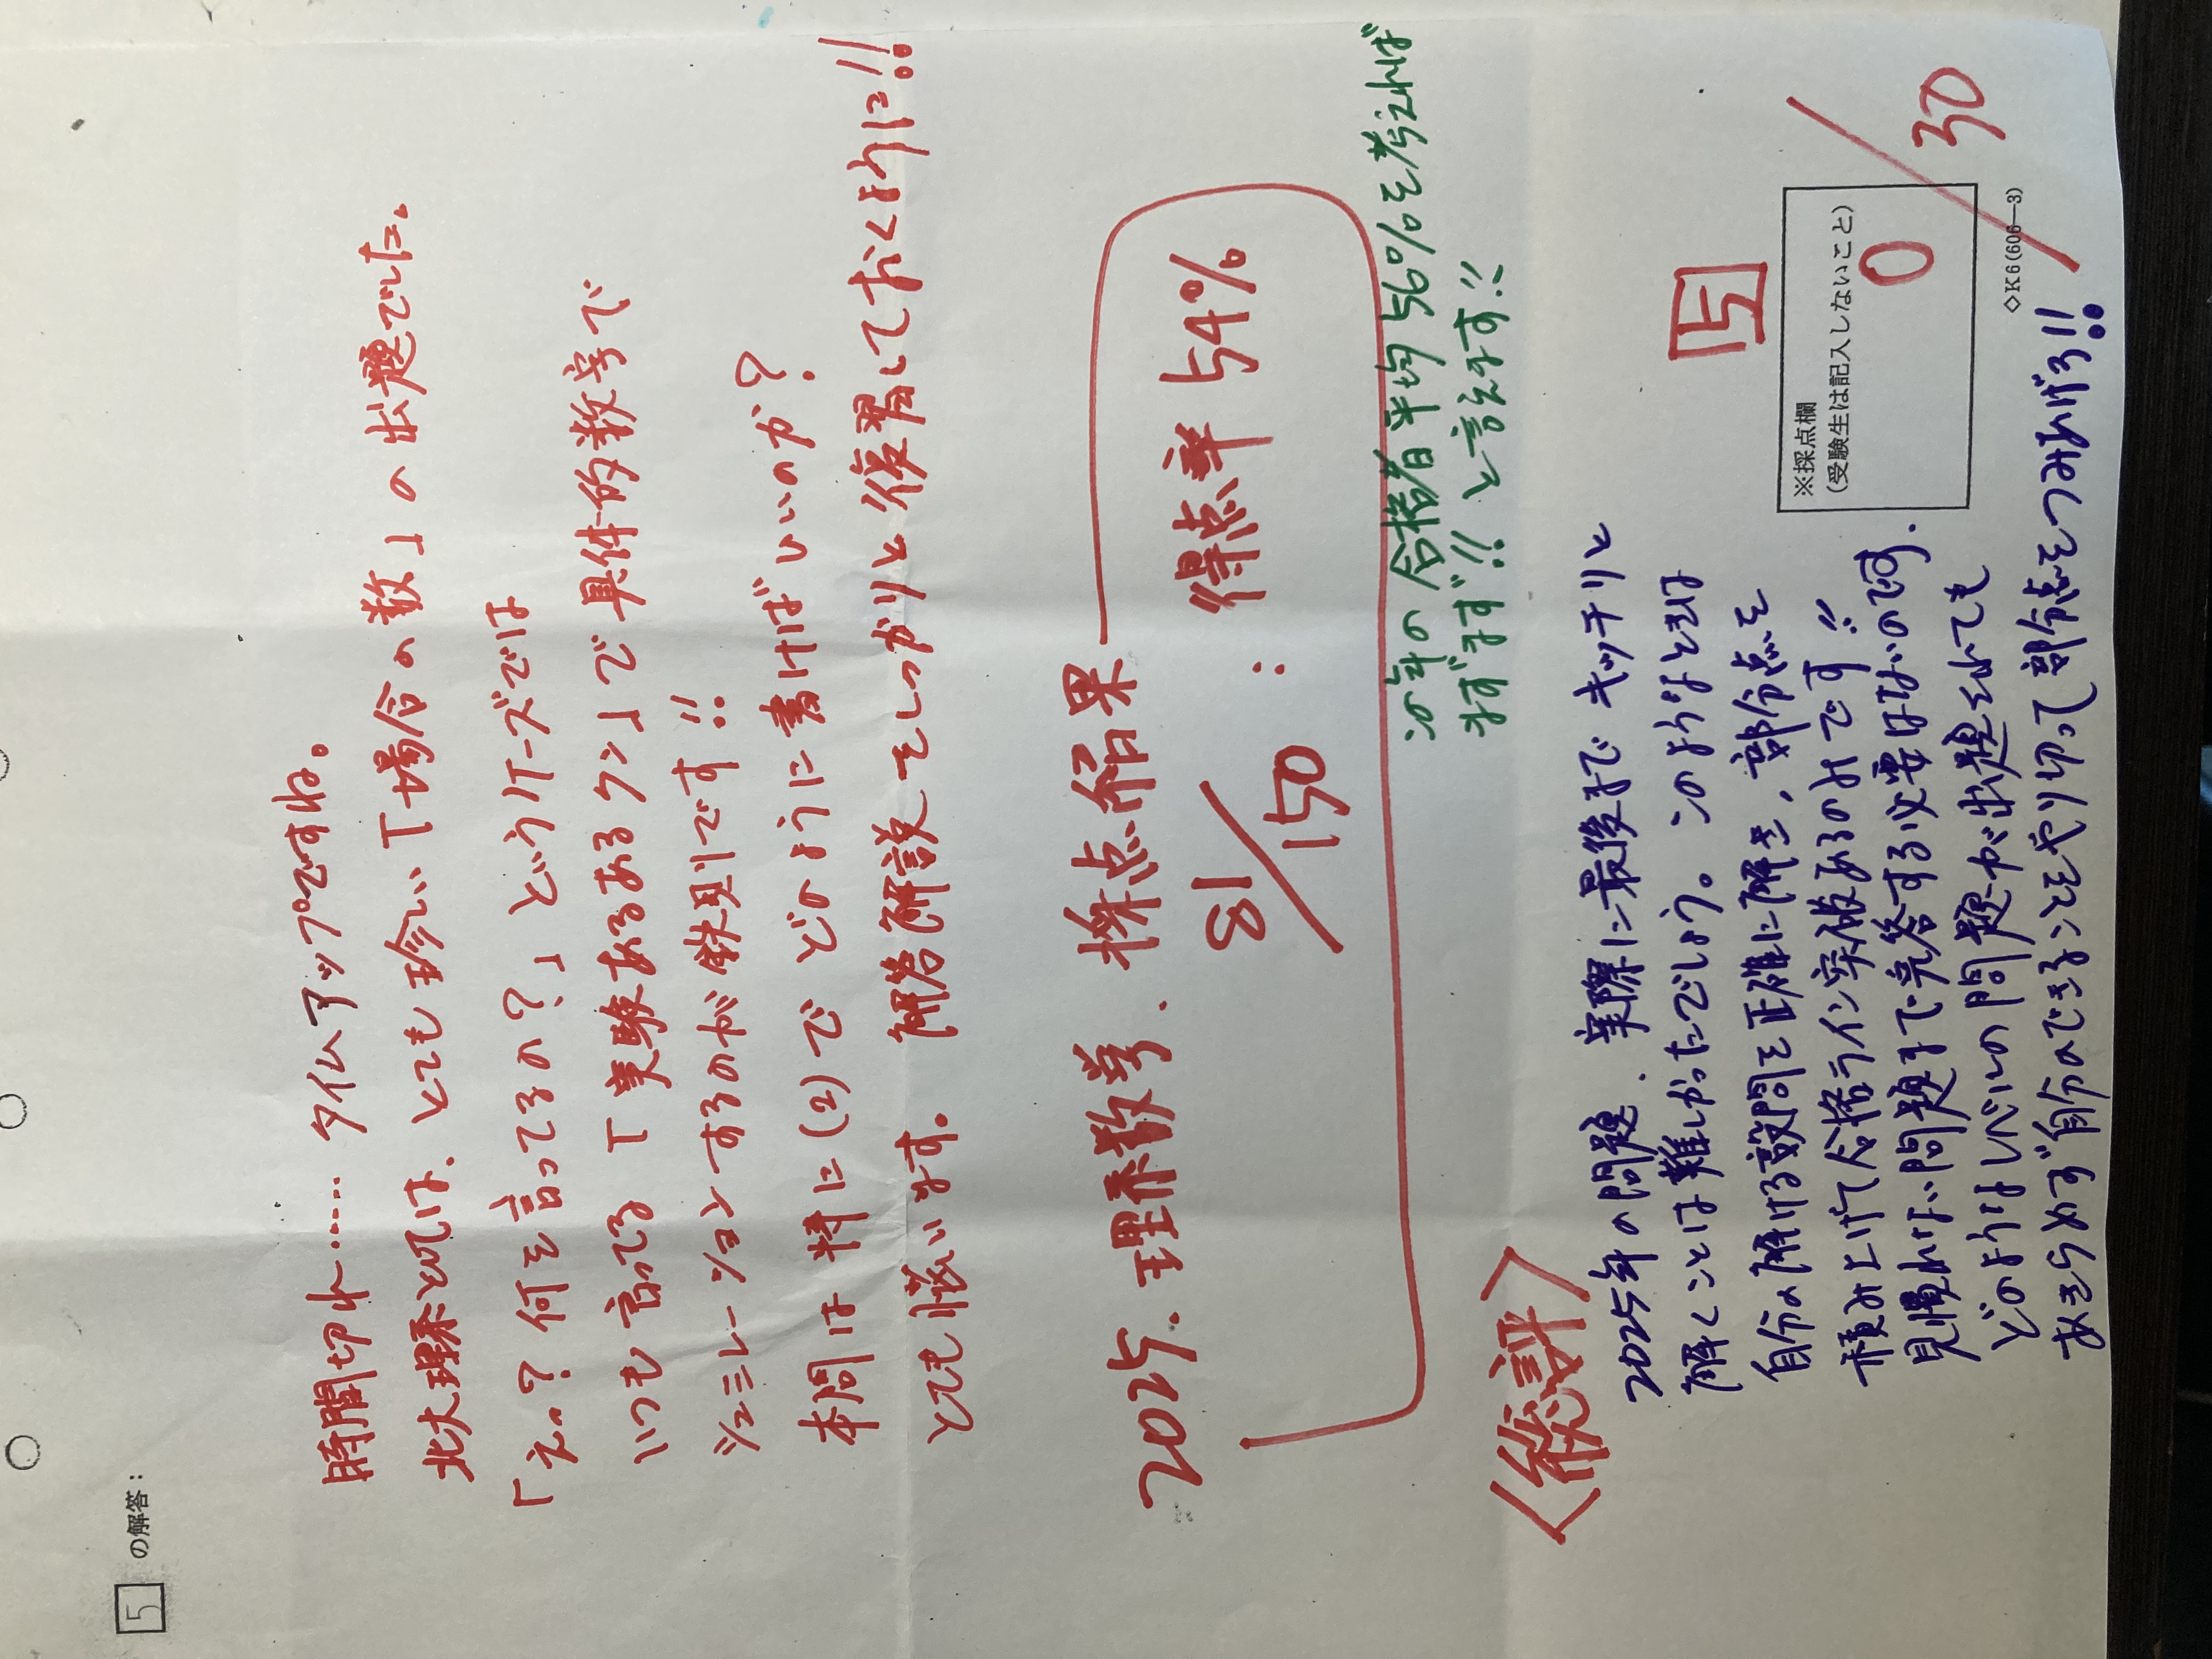 5 の解答：
時間切れ…… タイムアップですね。
北大理系としては、とても珍しい「場合の数」の出題でした。
「えっ？何を言ってるの？」というケースでは
いつも言ってる「実験あるあるクン」で具体的数字で
シュミレーションするのが鉄則です!!
本問は特に(2)でどのように書けばいいのか？
とても懐います。解答解説をしっかりと復習しておくように!!
2025. 理系数学. 採点結果
81/150 : 得点率 54%
この年の合格者平均56%を考えれば
まずまず!! と言えます!!
〈総評〉
2025年の問題．実際に最後までキッチリと
解くことは難しかったでしょう。このようなときは
自分の解ける設問を正確に解き，部分点を
積み上げて合格ライン突破あるのみです!!
見慣れない問題まで完答する必要はないのです．
どのようなレベルの問題が出題されても
あきらめず自分のできることをやり切って部分点をつみあげろ!!
5
※採点欄
（受験生は記入しないこと）
0/30
◇K6(606—3)